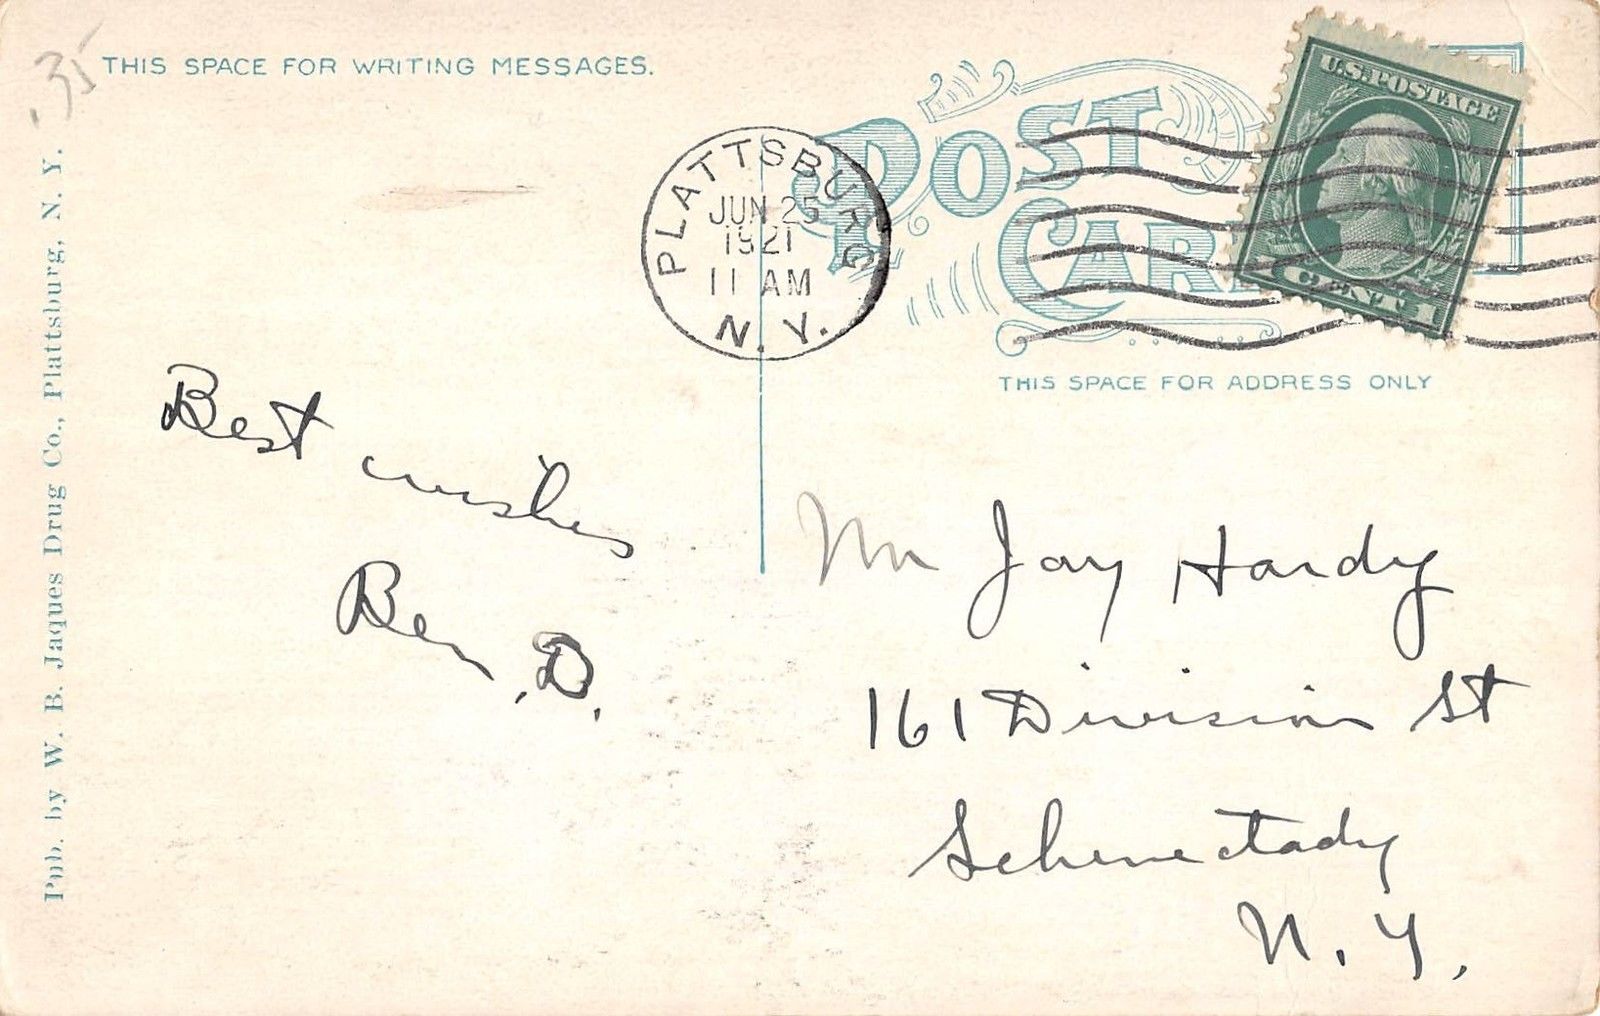 .35
THIS SPACE FOR WRITING MESSAGES.
Pub. by W. B. Jaques Drug Co., Plattsburg, N. Y.
POST
CAR
PLATTSBURG
JUN 25
1921
11 AM
N.Y.
U.S. POSTAGE
1 CENT 1
THIS SPACE FOR ADDRESS ONLY
Best wishes
Ben. D.
Mr Jay Hardy
161 Division St
Schenectady
N. Y.